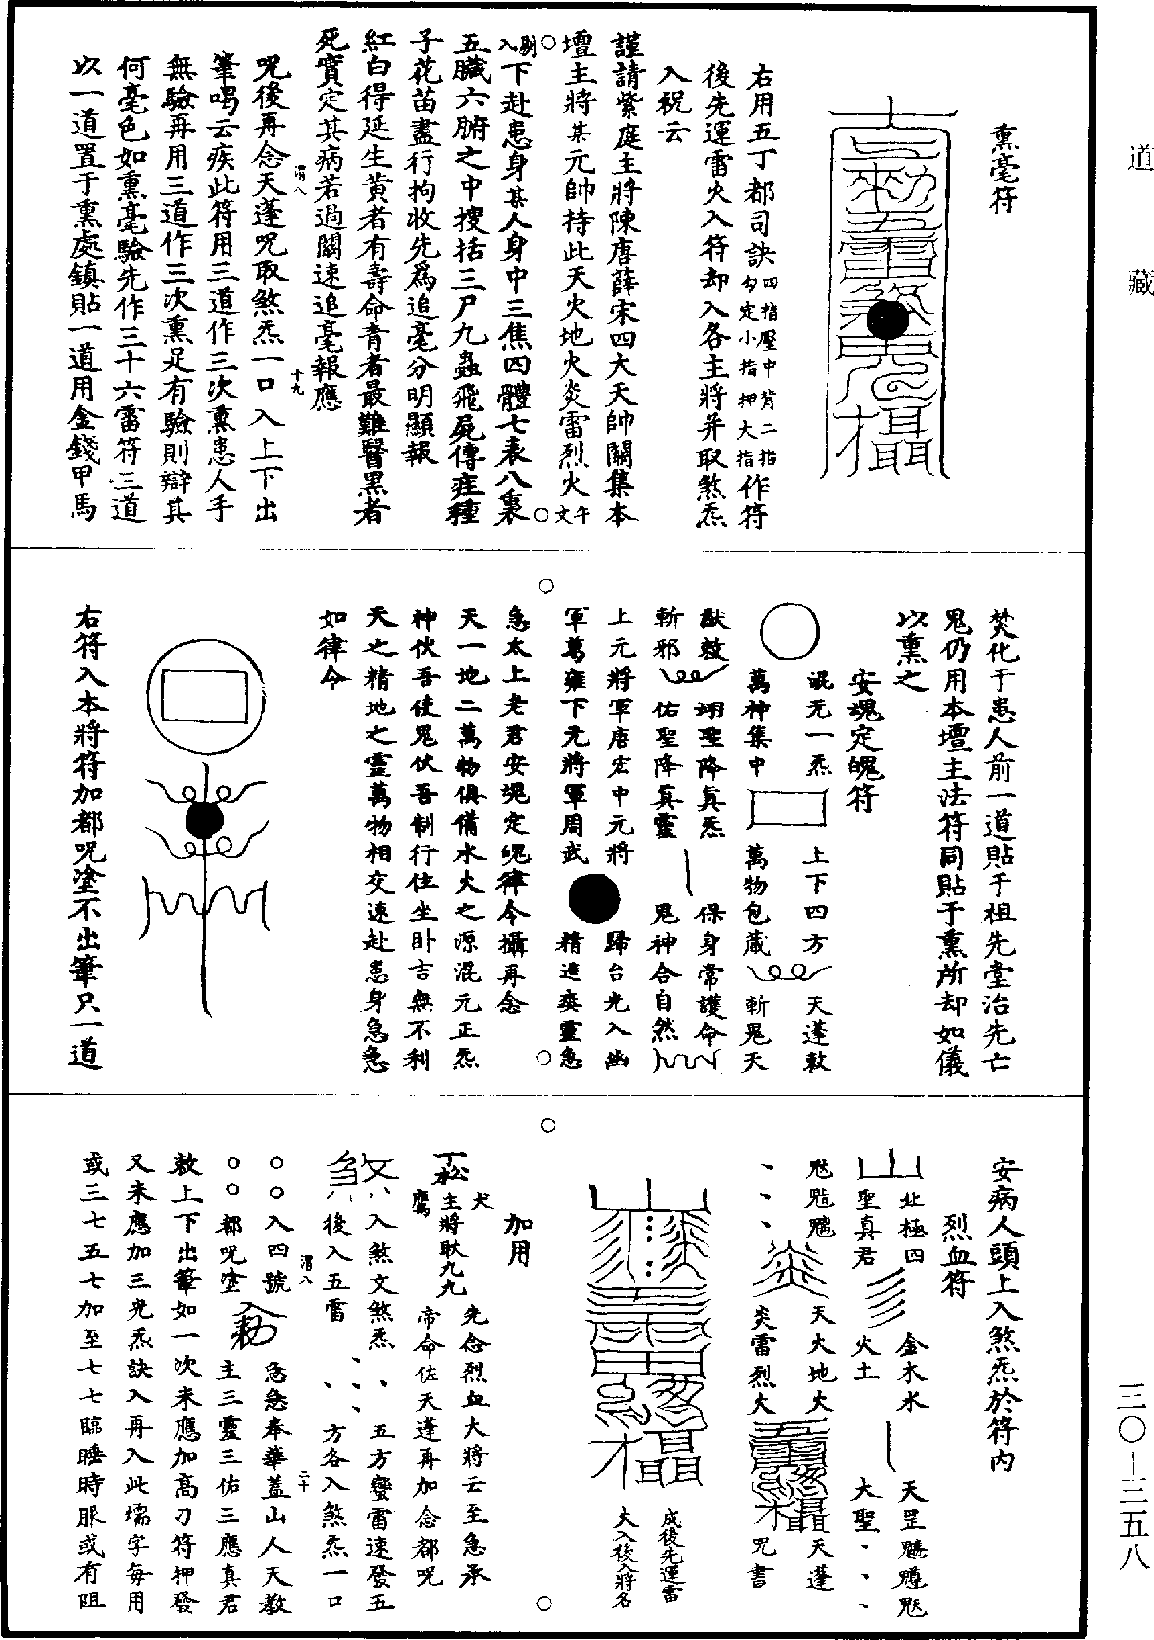 道藏
熏毫符
右用五丁都司訣四指壓中背二指勾定小指押大指作符
後先運雷火入符却入各主將并取煞炁
入祝云
謹請紫庭主將陳唐薛宋四大天帥關集本
壇主將某元帥持此天火地火炎雷烈火午文
入剔下赴患身某人身中三焦四體七表八裏
五臟六腑之中搜括三尸九蟲飛屍傳疰種
子花苗盡行拘收先為追毫分明顯報
紅白得延生黄者有壽命青者最難醫黑者
死實定其病若過關速追毫報應
咒後再念天蓬咒取煞炁一口入上下出
筆喝云疾此符用三道作三次熏患人手
無驗再用三道作三次熏足有驗則辯其
何毫色如熏毫驗先作三十六雷符三道
以一道置于熏處鎮貼一道用金錢甲馬
焚化于患人前一道貼于祖先堂治先亡
鬼仍用本壇主法符同貼于熏所却如儀
以熏之
安魂定魄符
混元一炁 上下四方 天蓬敕
萬神集中 萬物包藏 斬鬼天
猷敕 翊聖降真炁 保身常護命
斬邪 佑聖降真靈 鬼神合自然
上元將軍唐宏中元將 歸台光入幽
軍葛雍下元將軍周武 精進爽靈急
急太上老君安魂定魄律令攝再念
天一地二萬物俱備水火之源混元正炁
神伏吾使鬼伏吾制行住坐卧吉無不利
天之精地之靈萬物相交速赴患身急急
如律令
右符入本將符加都咒塗不出筆只一道
安病人頭上入煞炁於符内
烈血符
北極四 金木水 天罡
聖真君 火土 大聖
天火地火 天蓬
炎雷烈火 咒書
成後先運雷
火入後入將名
加用
犬 主將耿九九 先念烈血大將云至急承
鷹 帝命佐天蓬再加念都咒
入煞文煞炁 五方蠻雷速發五
後入五雷 方各入煞炁一口
入四號 急急奉華蓋山人天敕
都咒塗 主三靈三佑三應真君
敕上下出筆如一次未應加高刀符押發
又未應加三光炁訣入再入此壖字每用
或三七五七加至七七臨睡時服或有阻
三〇-三五八